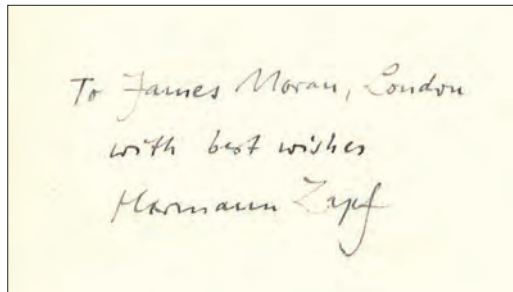 To James Moran, London
with best wishes
Hermann Zapf